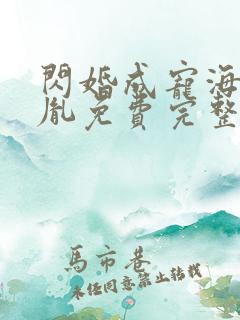 閃婚成寵海
胤免費完整
馬市巷
未经同意禁止转载